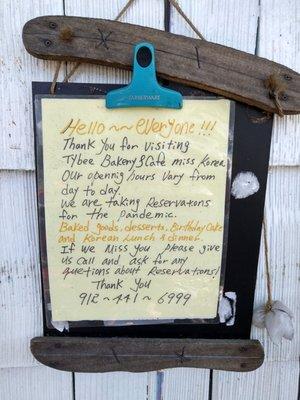 FARBERWARE
Hello ~~ everyone !!!
Thank you for visiting
Tybee Bakery & Cafe miss Korea
Our opening hours vary from
day to day.
We are taking Reservations
for the Pandemic.
Baked goods, desserts, Birthday Cake
and Korean Lunch & dinner.
If we Miss you Please give
us Call and ask for any
questions about Reservations!
Thank you
912 ~ 441 ~ 6999